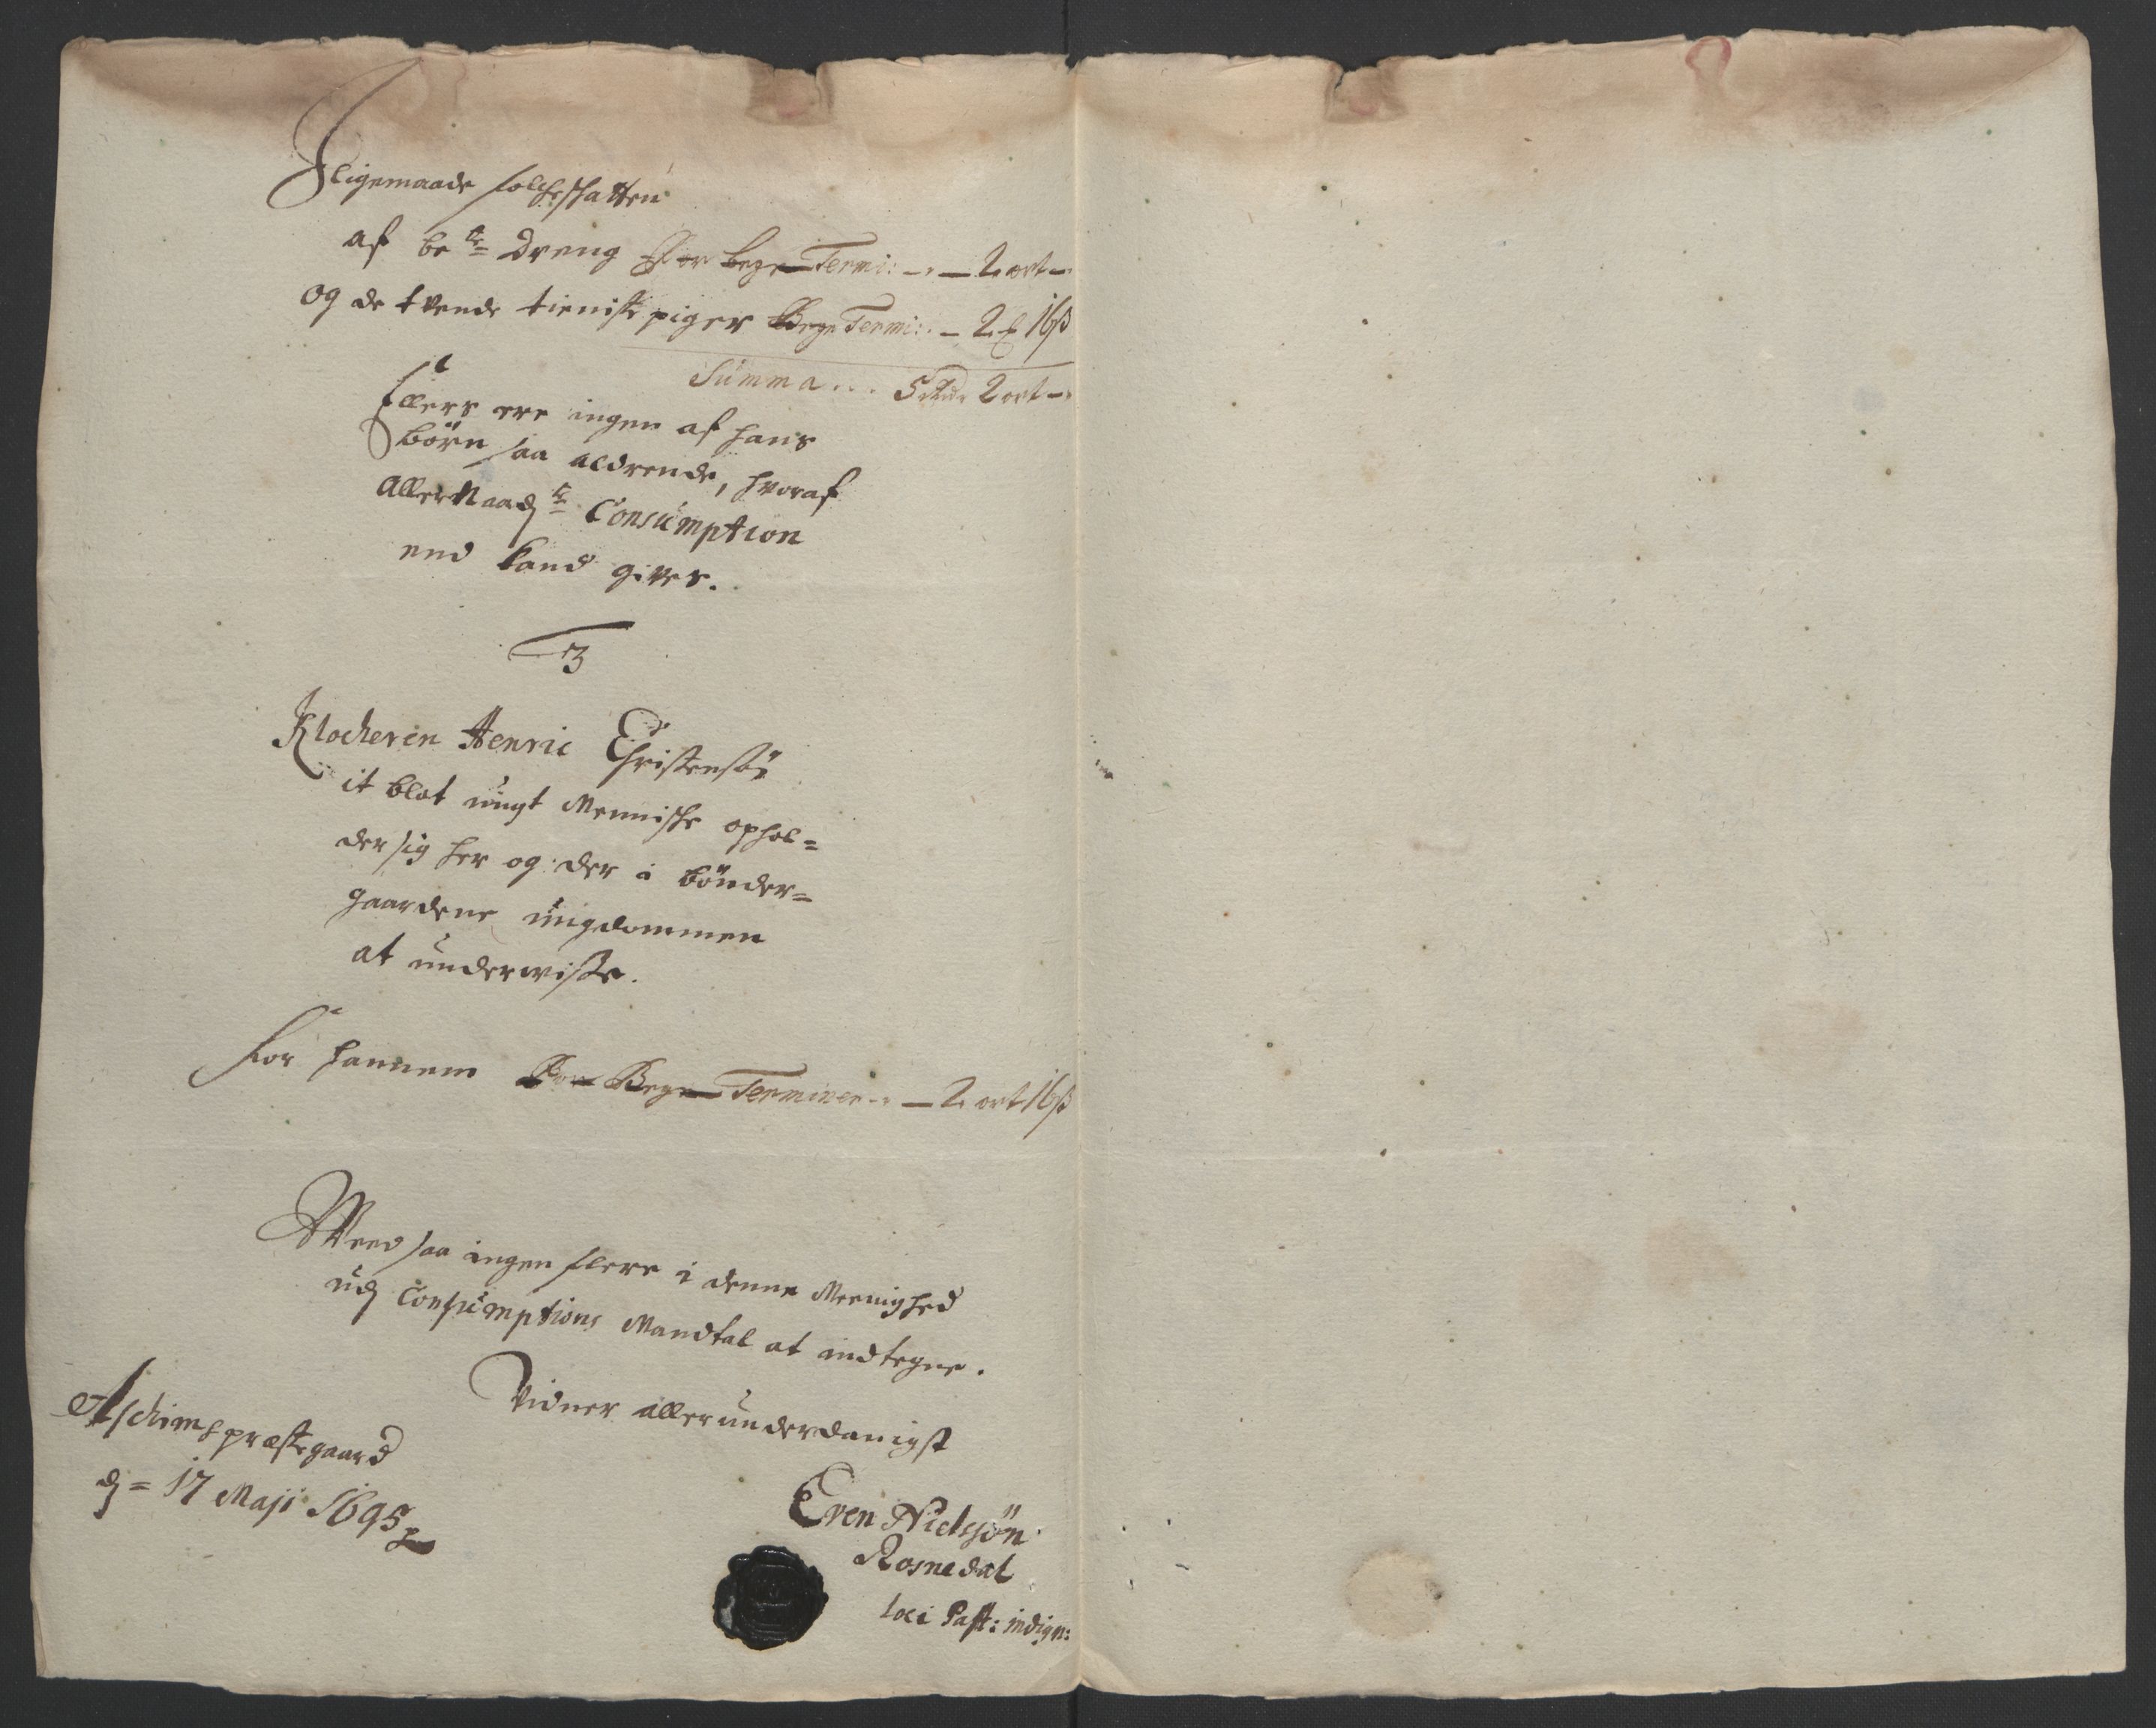 Jligemaade folcheskatten
af be.te Dreng for begge Termi: — 2 ort —
og de tvende tieniste piger Begge Termi: — 2 16 ß
Summa... 5 Rdr 2 ort —
Ellers ere ingen af hans
börn saa aldrende, hvoraf
allernaadste Consumption
end kand gives.
3
Klocheren Henric Christensön
it blot ungt Menniske ophol=
der sig her og der i bönder=
gaardene ungdommen
at underwisse.
for hannem for Begge Terminer — 2 ort 16 ß
Weed saa ingen flere i denne Meenighed
udj Consumptions Mandtal at indtegne.
Vidner allerunderdanigst
Aschims præstegaard
dj = 17 Maji 1695
Even Nielssön
Rosnedal
loci Past: indign: